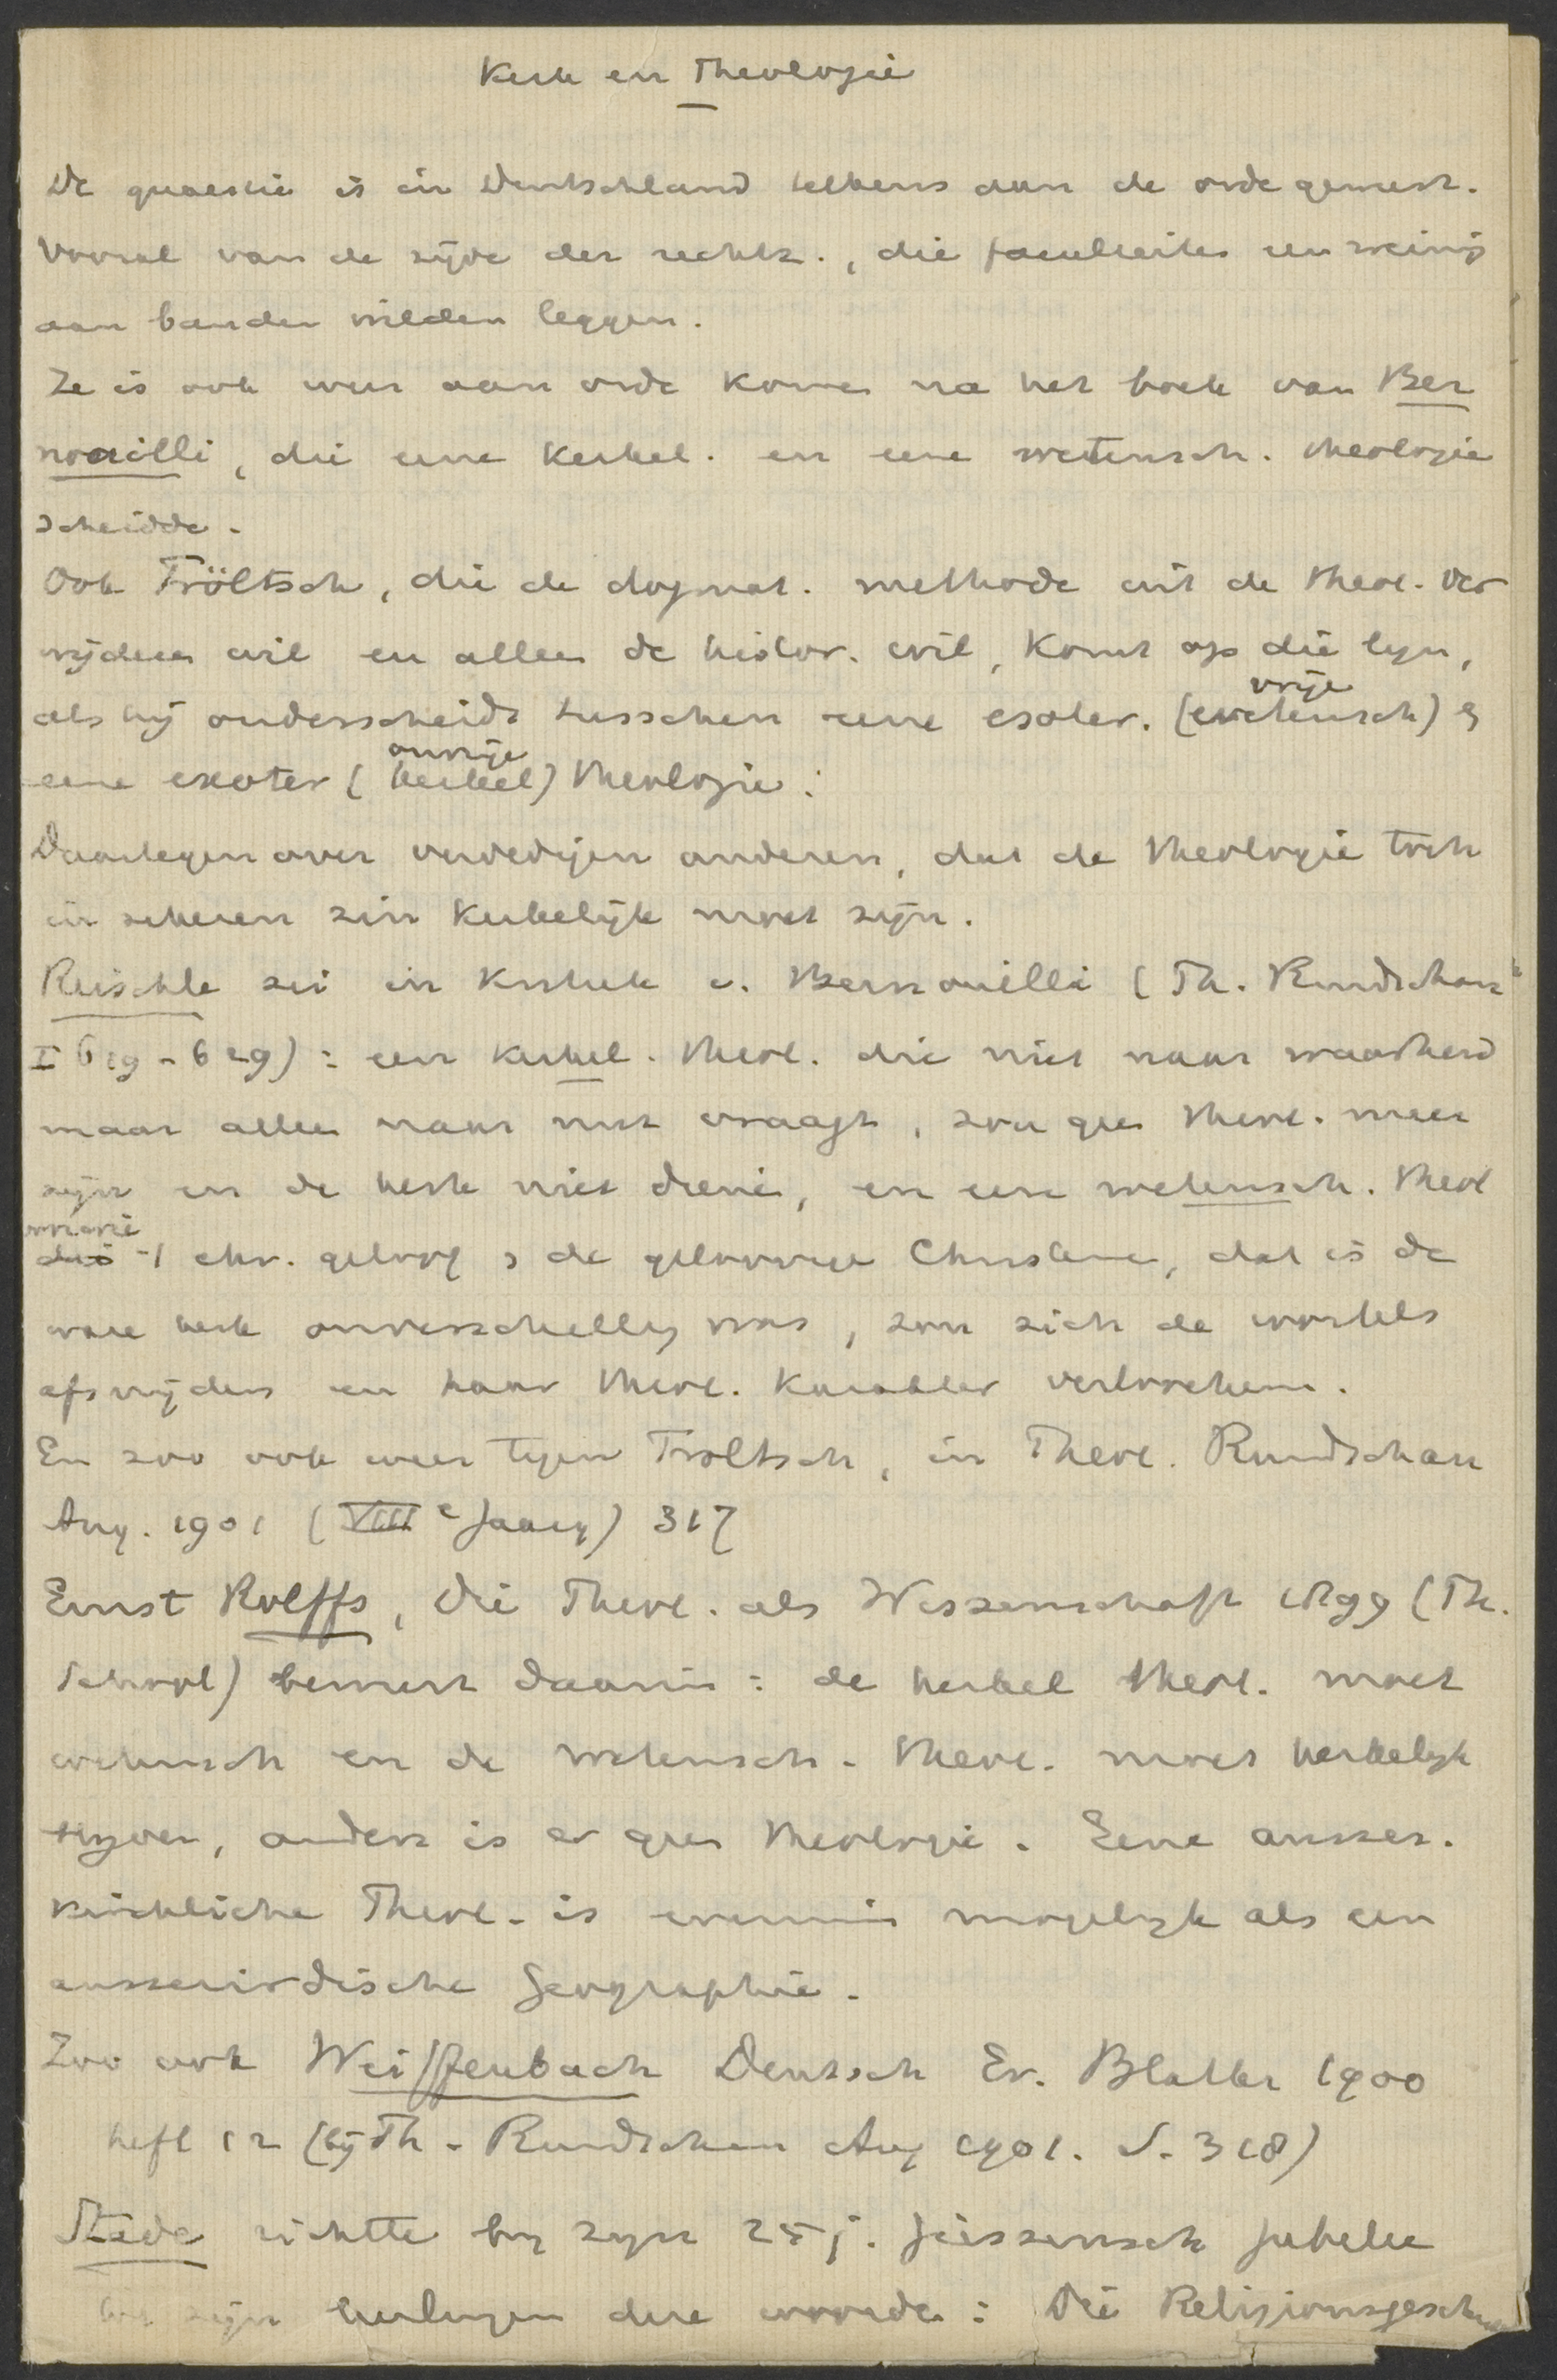 Kerk en Theologie
De quaestie is in Deutschland telkens aan de orde geweest.
Vooral van de zijde der rechtz., die faculteiten een weinig
aan banden wilden leggen.
Ze is ook weer aan orde komen na het boek van Ber
nouilli, die eene Kerkel. en eene wetensch. theologie
scheidde.
Ook Tröltsch, die de dogmat. methode uit de theol. ver
wijderen wil en alleen de histor. wil, komt op die lijn,
als hij onderscheidt tusschen eene esoter. (vrije wetensch) &
eene exoter (onvrije kerkel) theologie.
Daartegenover verdedigen anderen, dat de theologie toch
in zekeren zin kerkelijk moet zijn.
Reischle zei in Kritiek v. Bernouilli (Th. Rundschau
I 619-629): een kerkel. theol. die niet naar waarheid
maar alleen naar nut vraagt, zou geen theol. meer
zijn en de kerk niet dienen, en een wetensch. theol
die 't chr. geloof & de geloovige Christenen, dat is de
ware kerk onverschillig was, zou zich de wortels
afsnijden en haar theol. karakter verloochenen.
En zoo ook weer tegen Troltsch, in Theol. Rundschau
Aug. 1901 (VIIIe Jaarg) 317
Ernst Rolffs, Die Theol. als Wissenschaft 1899 (Th.
School) bemerkt daarin: de kerkel theol. moet
wetensch en de wetensch. theol. moet kerkelijk
blijven, anders is er geen theologie. Eene ausser.
kirchliche Theol. is evenmin mogelijk als een
ausserirdische Geographie.
Zoo ook Weiffenbach Deutsch Ev. Blatter 1900
heft 12 (bij Th. Rundschau Aug 1901. S. 318)
Stade richtte bij zijn 25 j. Giessensch jubelee
tot zijn leerlingen deze woorden: Die Religionsgesch